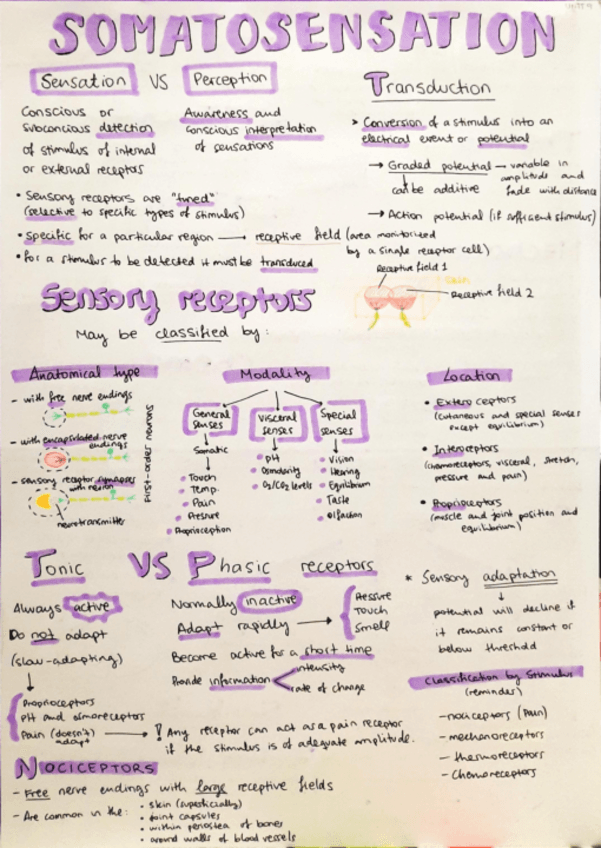 SOMATOSENSATION
Sensation VS Perception
Conscious or
subconcious detection
of stimulus of internal
or external receptors
Awareness and
conscious interpretation
of sensations
Transduction
> Conversion of a stimulus into an
electrical event or potential
→ Graded potential → variable in
amplitude and
fade with distance
can be additive
→ Action potential (if sufficient stimulus)
• Sensory receptors are "tuned"
(selective to specific types of stimulus)
• specific for a particular region → receptive field (area monitorized
by a single receptor cell)
• for a stimulus to be detected it must be transduced
Receptive field 1
skin
Receptive field 2
Sensory receptors
May be classified by:
Anatomical type
- with free nerve endings
- with encapsulated nerve
endings
- sensory receptor synapses
with neuron
neurotransmitter
First-order neurons
Modality
General
senses
Somatic
• Touch
• Temp.
• Pain
• Pressure
• Proprioception
Visceral
senses
• pH
• Osmolarity
• O2/CO2 levels
Special
senses
• Vision
• Hearing
• Equilibrium
• Taste
• Olfaction
Location
• Exteroceptors
(cutaneous and special senses
except equilibrium)
• Interoceptors
(chemoreceptors, visceral, stretch,
pressure and pain)
• Proprioceptors
(muscle and joint position and
equilibrium)
Tonic VS Phasic receptors
Always active
Do not adapt
(slow-adapting)
Proprioceptors
pH and osmoreceptors
Pain (doesn't
adapt)
Normally inactive
Adapt rapidly →
Pressure
Touch
Smell
Become active for a short time
Provide information
intensity
rate of change
! Any receptor can act as a pain receptor
if the stimulus is of adequate amplitude.
* Sensory adaptation
potential will decline if
it remains constant or
below threshold
Classification by stimulus
(reminder)
- nociceptors (pain)
- mechanoreceptors
- thermoreceptors
- chemoreceptors
NOCICEPTORS
- Free nerve endings with large receptive fields
- Are common in the:
• skin (superficially)
• joint capsules
• within periostea of bones
• around walls of blood vessels